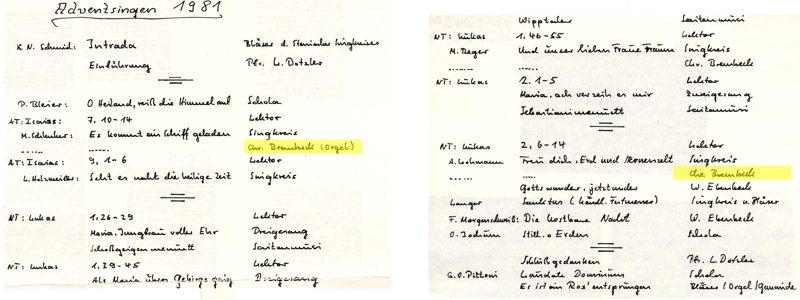 Adventsingen 1981
K. N. Schmid: Intrada Bläser d. Steinacher Singkreises
Einführung Pfr. L. Dotzler
P. Bleier: O Heiland, reiß die Himmel auf Schola
AT: Isaias: 7, 10-14 Lektor
M. Schlenker: Es kommt ein Schiff geladen Singkreis
Chr. Brembeck (Orgel)
AT: Isaias: 9, 1-6 Lektor
L. Holzmeister: Seht es naht die heilige Zeit Singkreis
NT: Lukas 1, 26-29 Lektor
Maria, Jungfrau voller Ehr Dreigesang
Schoßgeigenmenuett Saitenmusi
NT: Lukas 1, 39-45 Lektor
Als Maria übers Gebirge ging Dreigesang
Wipptaler Saitenmusi
NT: Lukas 1. 46-55 Lektor
M. Reger Und unser lieben Fraue Traum Singkreis
------ ------ Chr. Brembeck
NT: Lukas 2. 1-5 Lektor
Maria, ach verzeih es mir Zweigesang
Sebastianimenuett Saitenmusi
NT: Lukas 2, 6-14 Lektor
A. Lohmann Freu dich, Erd und Sternenzelt Singkreis
------ ------ Chr. Brembeck
Gotts wunder, jetzunder W. Ebenbeck
Langer Sanktus Singkreis u. Bläser
Die kostbare Nacht W. Ebenbeck
O. Jochum Still, o Erden Schola
Schlußgedanken Pfr. L. Dotzler
G. O. Pittoni Laudate Dominum Schola
Es ist ein Ros' entsprungen Bläser/Orgel/Gemeinde